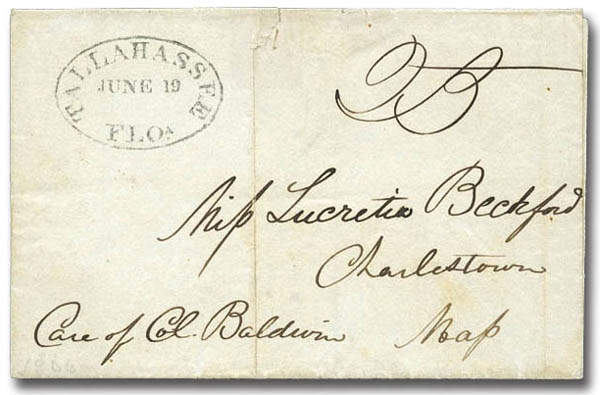 TALLAHASSEE
JUNE 19
FLOA
25
Miss Lucretia Beckford
Charlestown
Care of Col. Baldwin Mass